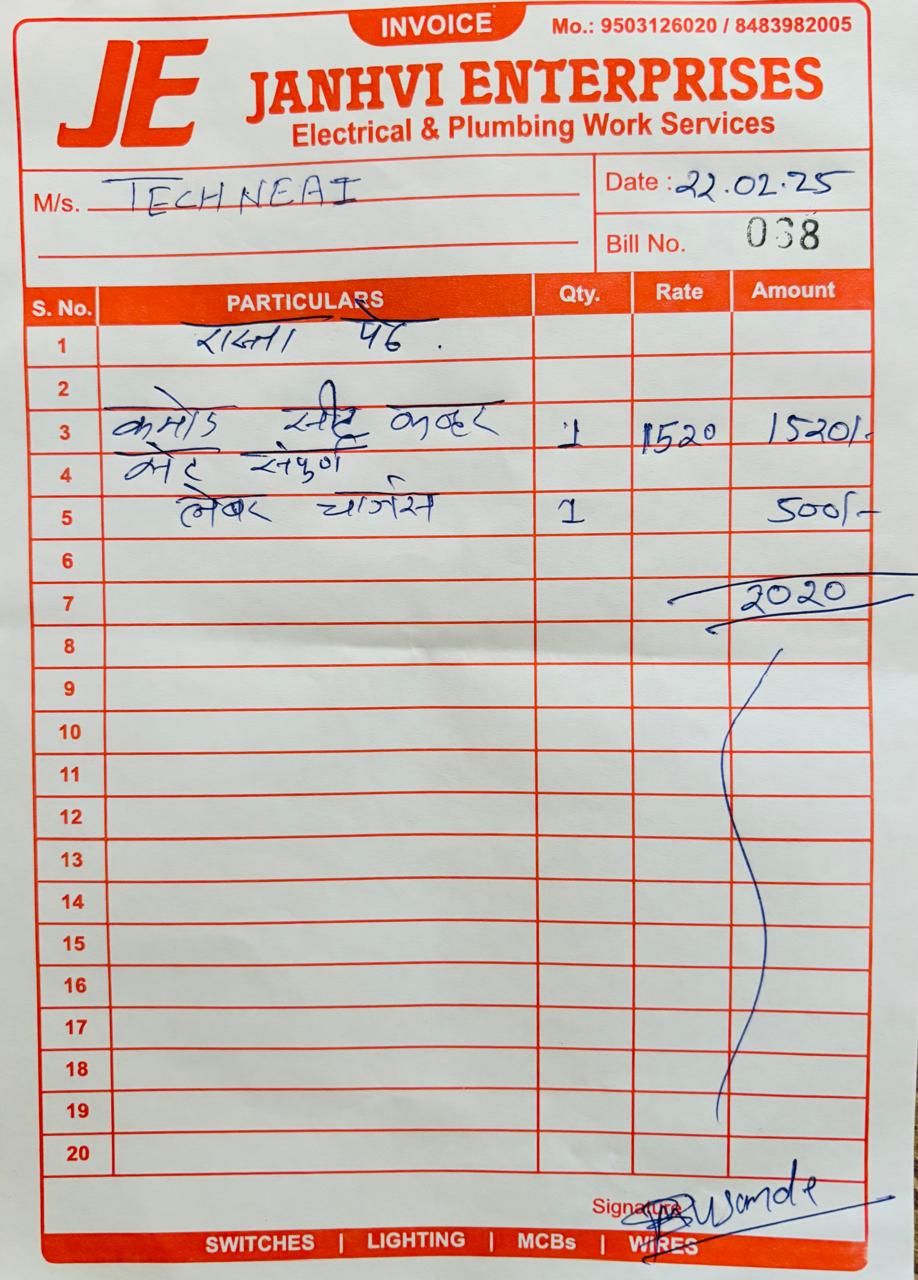 INVOICE
Mo.: 9503126020 / 8483982005
JE
JANHVI ENTERPRISES
Electrical & Plumbing Work Services
M/s. TECHNEAI
Date : 22.02.25
Bill No. 068
S. No. PARTICULARS Qty. Rate Amount
1 रास्ता पेठ .
2
3 कमोड सीट कव्हर 1 1520 1520/-
4 सेट संपूर्ण
5 लेबर चार्जेस 1 500/-
6
7 2020
8
9
10
11
12
13
14
15
16
17
18
19
20
Signature
SWITCHES | LIGHTING | MCBs | WIRES